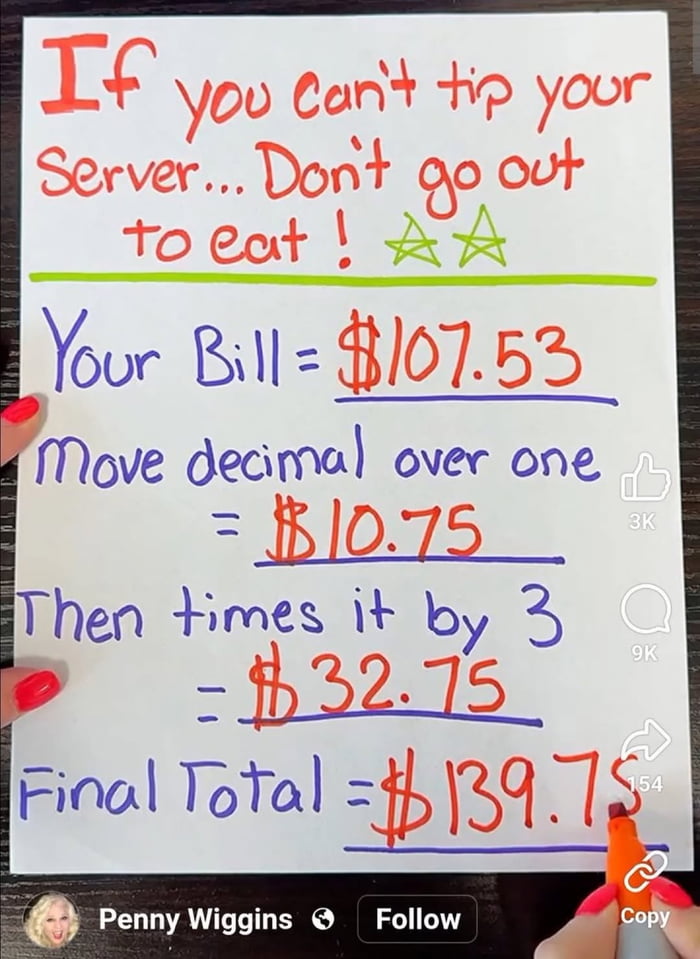 If you can't tip your
Server... Don't go out
to eat!
Your Bill = $107.53
Move decimal over one
= $10.75
Then times it by 3
= $32.75
Final Total = $139.75
3K
9K
154
Copy
Penny Wiggins
Follow